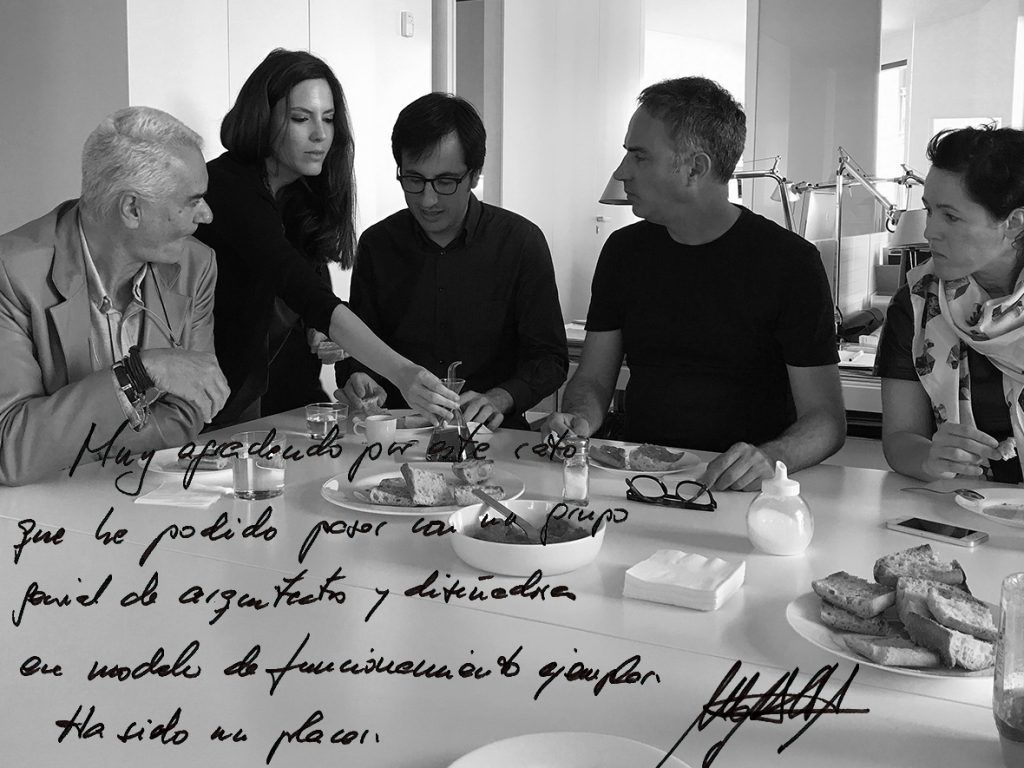 Muy agradecido por este rato
que he podido pasar con un grupo
genial de arquitectos y diseñadores
en modelo de funcionamiento ejemplar.
Ha sido un placer.